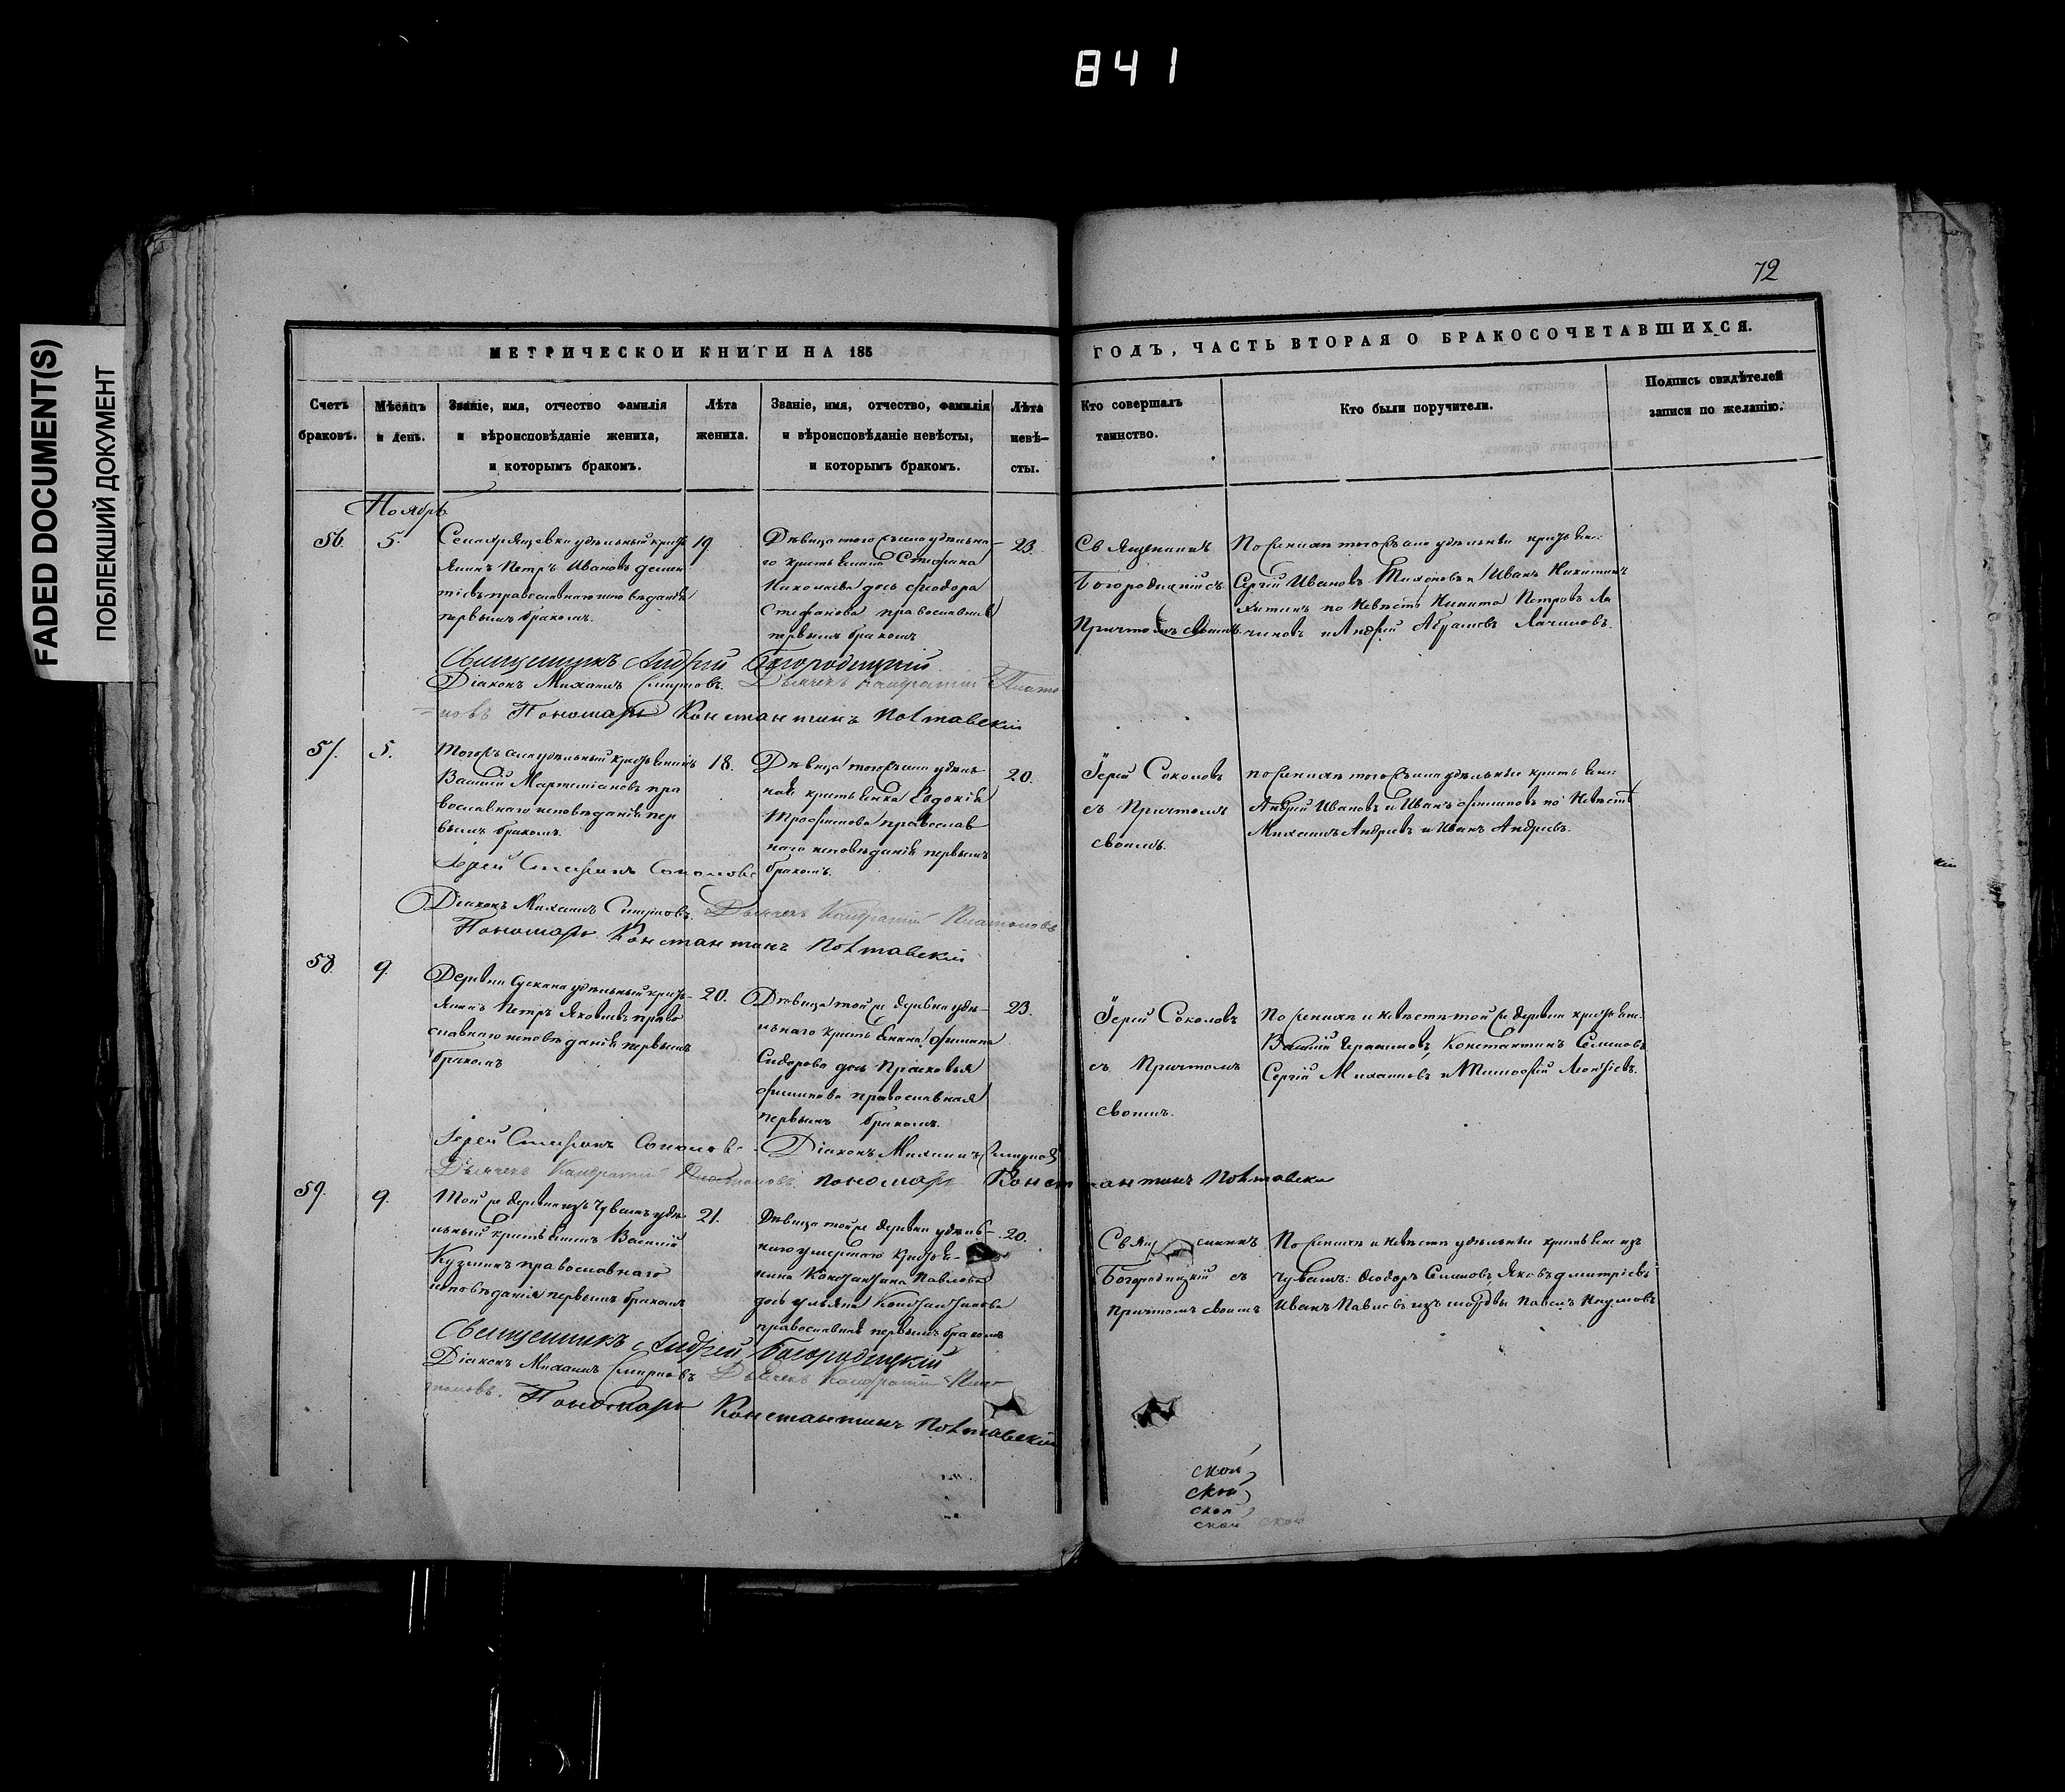 841
FADED DOCUMENT(S)
ПОБЛЕКШИЙ ДОКУМЕНТ
72
МЕТРИЧЕСКОИ КНИГИ НА 185
ГОДЪ, ЧАСТЬ ВТОРАЯ О БРАКОСОЧЕТАВШИХСЯ.
Счетъ
браковъ.
Мѣсяцъ
и день.
Званіе, имя, отчество фамилія
и вѣроисповѣданіе жениха,
и которымъ бракомъ.
Лѣта
жениха.
Званіе, имя, отчество, фамилія
и вѣроисповѣданіе невѣсты,
и которымъ бракомъ.
Лѣта
невѣ-
сты.
Кто совершалъ
таинство.
Кто были поручители.
Подпись свидѣтелей
записи по желанію.
Ноябрь
56.
5.
Села удѣльный кресть
янинъ Петръ Ивановъ
православнаго исповѣданія
первымъ бракомъ.
19.
Дѣвица тогожъ села удѣльна-
го крестьянина Стефана
Николаева дочь Феодора
Стефанова православная
первымъ бракомъ
23.
Священникъ
Богородицкій съ
Причтомъ своимъ.
По женихѣ тогожъ села удѣльные крестьяне:
Сергій Ивановъ Тихоновъ и Иванъ Никитинъ
по невѣстѣ Никита Петровъ
и Андрей Абрамовъ
Священникъ Андрей Богородицкій
Діаконъ Михаилъ Смирновъ. Дьячекъ Кандратій Плато
новъ Пономарь Константинъ Полтавскій
57.
5.
Тогожъ села удѣльный крестьянинъ
Василій Мартиміановъ пра
вославнаго исповѣданія пер
вымъ бракомъ.
18.
Дѣвица тогожъ села удѣль
ная крестьянка Евдокія
Трофимова православ
наго исповѣданія первымъ
бракомъ.
20.
Іерей Соколовъ
съ Причтомъ
своимъ.
по женихѣ тогожъ села удѣльные крестьяне
Андрей Ивановъ и Иванъ Филиповъ по невѣстѣ
Михаилъ Андреевъ и Иванъ Андреевъ.
Іерей Стефанъ Соколовъ
Діаконъ Михаилъ Смирновъ. Дьячекъ Кандратій Платоновъ
Пономарь Константинъ Полтавскій
58.
9.
Деревни удѣльный кресть-
янинъ Петръ Яковлевъ право
славнаго исповѣданія первымъ
бракомъ
20.
Дѣвица той же деревни удѣ-
льнаго крестьянина Филипа
Сидорова дочь Прасковья
Филипова православная
первымъ бракомъ.
23.
Іерей Соколовъ
съ Причтомъ
своимъ.
По женихѣ и невѣстѣ той же деревни крестьяне:
Василій Константинъ Семеновъ
Сергій Михайловъ и Тимофей
Іерей Стефанъ Соколовъ. Діаконъ Михаилъ Смирновъ
Дьячекъ Кандратій Платоновъ. пономарь Константинъ Полтавски
59.
9.
Той же деревни изъ Чувашъ удѣ-
льный крестьянинъ Василій
Кузминъ православнаго
исповѣданія первымъ бракомъ
21.
Дѣвица той же деревни удѣль-
наго умершаго крестья-
нина Константина Павлова
дочь Ульяна Константинова
православная первымъ бракомъ
20.
Священникъ
Богородицкій съ
причтомъ своимъ
По женихѣ и невѣстѣ удѣльные крестьяне изъ
чувашъ: Феодоръ Семеновъ, Яковъ Дмитріевъ
Иванъ Павловъ изъ мордвы Павелъ Наумовъ
Священникъ Андрей Богородицкій
Діаконъ Михаилъ Смирновъ Дьячекъ Кандратій Пла-
тоновъ. Пономарь Константинъ Полтавскій
ской
ской
ской
ской ской